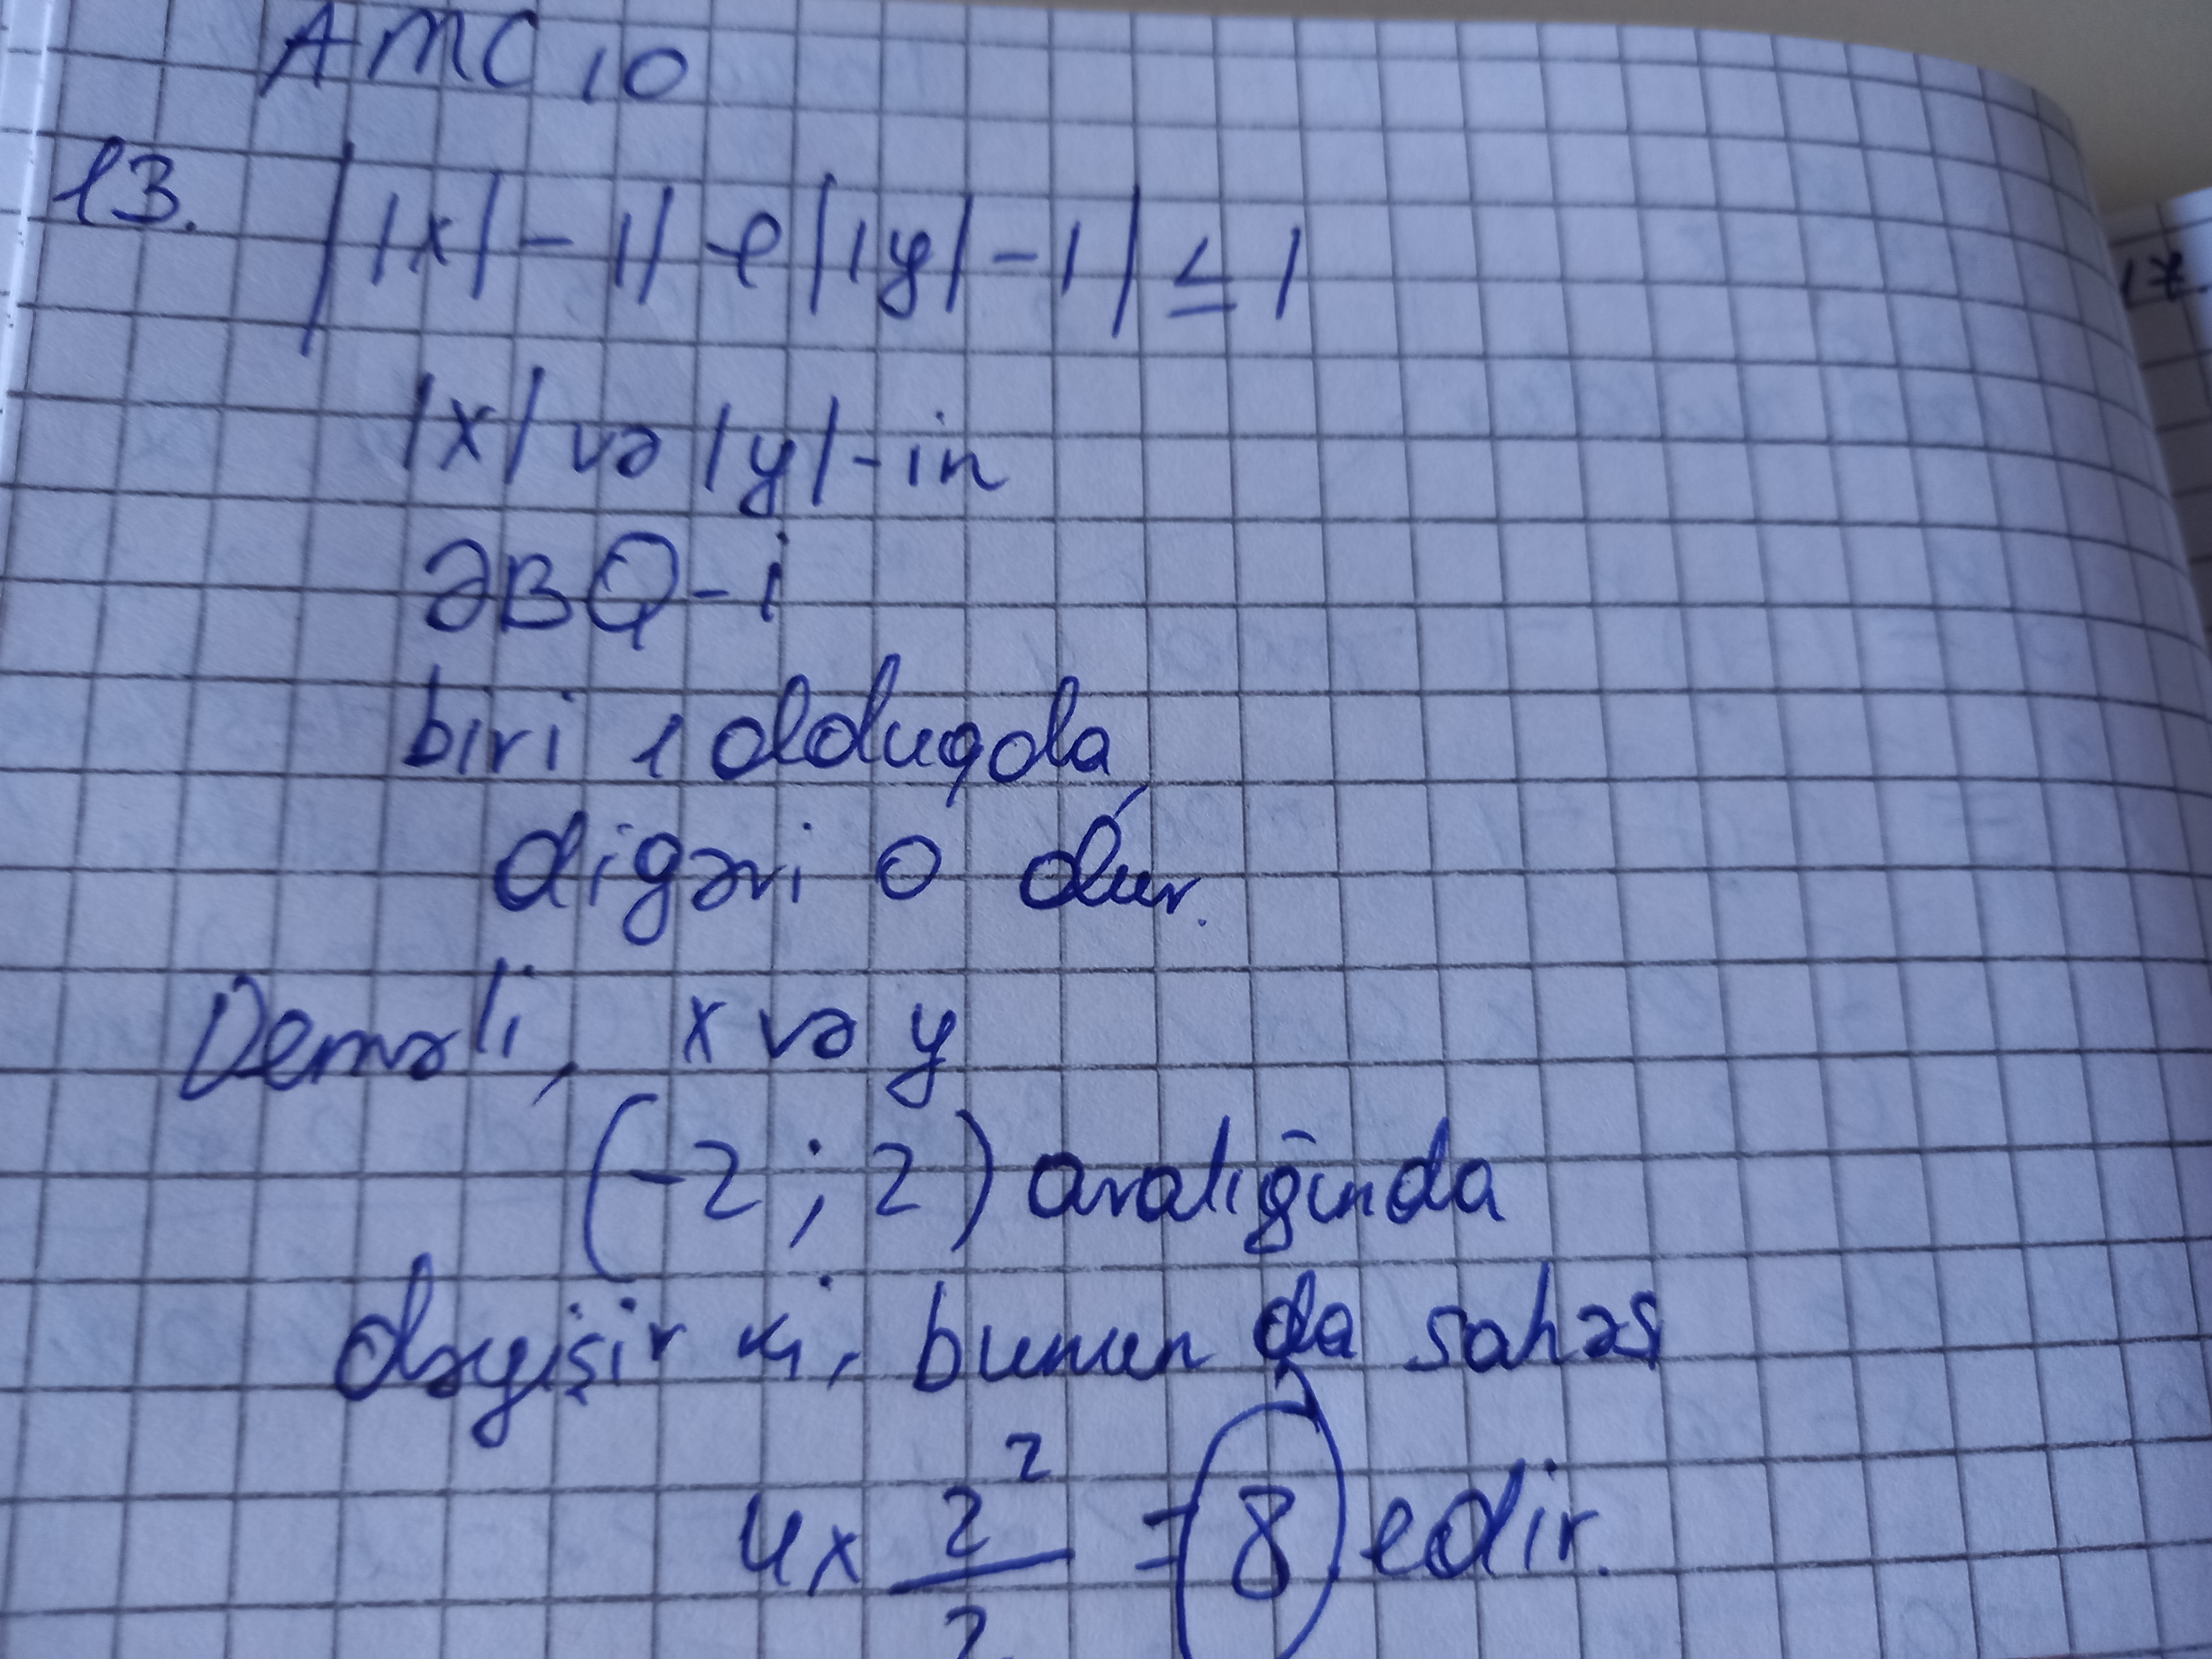 AMC 10
13. ||x|-1|+||y|-1| ≤ 1
|x| və |y|-in
ƏBQ-i
biri 1 olduqda,
digəri 0 olur.
Deməli, x və y
(-2; 2) aralığında
dəyişir ki, bunun da sahəsi
4x 2²/2 = 8 edir.